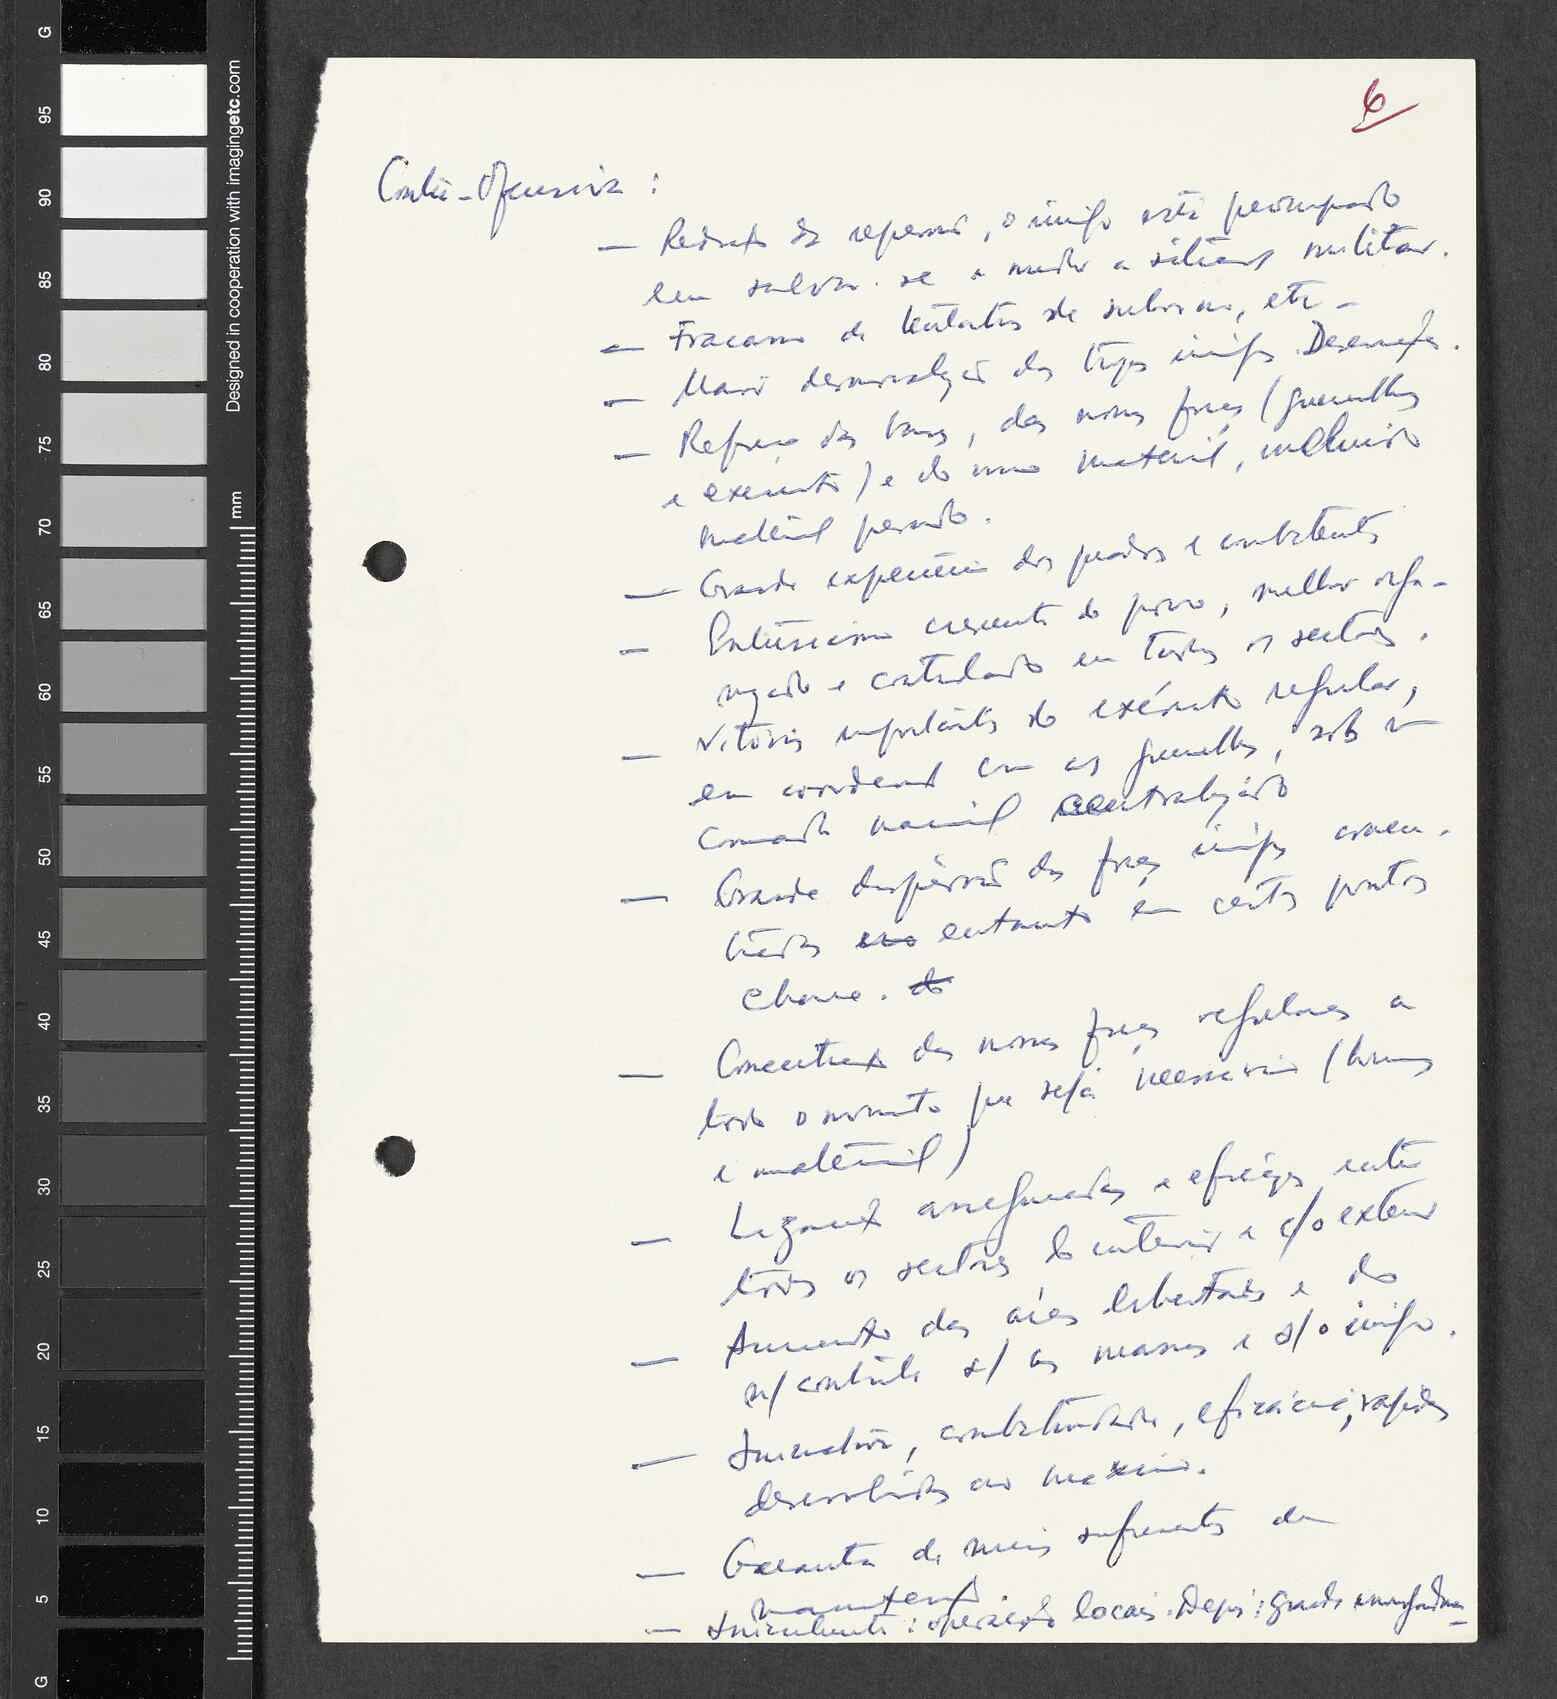 6
Contra-Ofensiva :
— Redução da repressão, o inimigo está preocupado
em salvar-se e mudar a situação militar.
— Fracasso de tentativas de suborno, etc -
— Maior desmoralização das tropas inimigas. Deserções.
— Reforço das bases, das nossas forças (guerrilhas
e exército) e do nosso material, incluindo
material pesado.
— Grande experiência dos quadros e combatentes
— Entusiasmo crescente do povo, melhor orga-
nizado e controlado em todos os sectores.
— Vitórias importantes do exército regular,
em coordenação com as guerrilhas, sob um
comando nacional centralizado
— Grande dispersão das forças inimigas concen-
tradas no entanto em certos pontos
chave. do
— Concentração das nossas forças regulares a
todo o momento que seja necessário (homens
e material)
— Ligações asseguradas e eficazes entre
todos os sectores do interior e c/o exterior
— Aumento das áreas libertadas e do
n/ controle s/ as massas e s/o inimigo.
— Iniciativa, combatividade, eficácia, rapidez
desenvolvidas ao máximo.
— Garantia de meios suficientes de
manutenção.
— Inicialmente : operações locais. Depois : grande envergadura
Designed in cooperation with imagingetc.com
mm
G
95
90
85
80
75
70
65
60
55
50
45
40
35
30
25
20
15
10
5
G